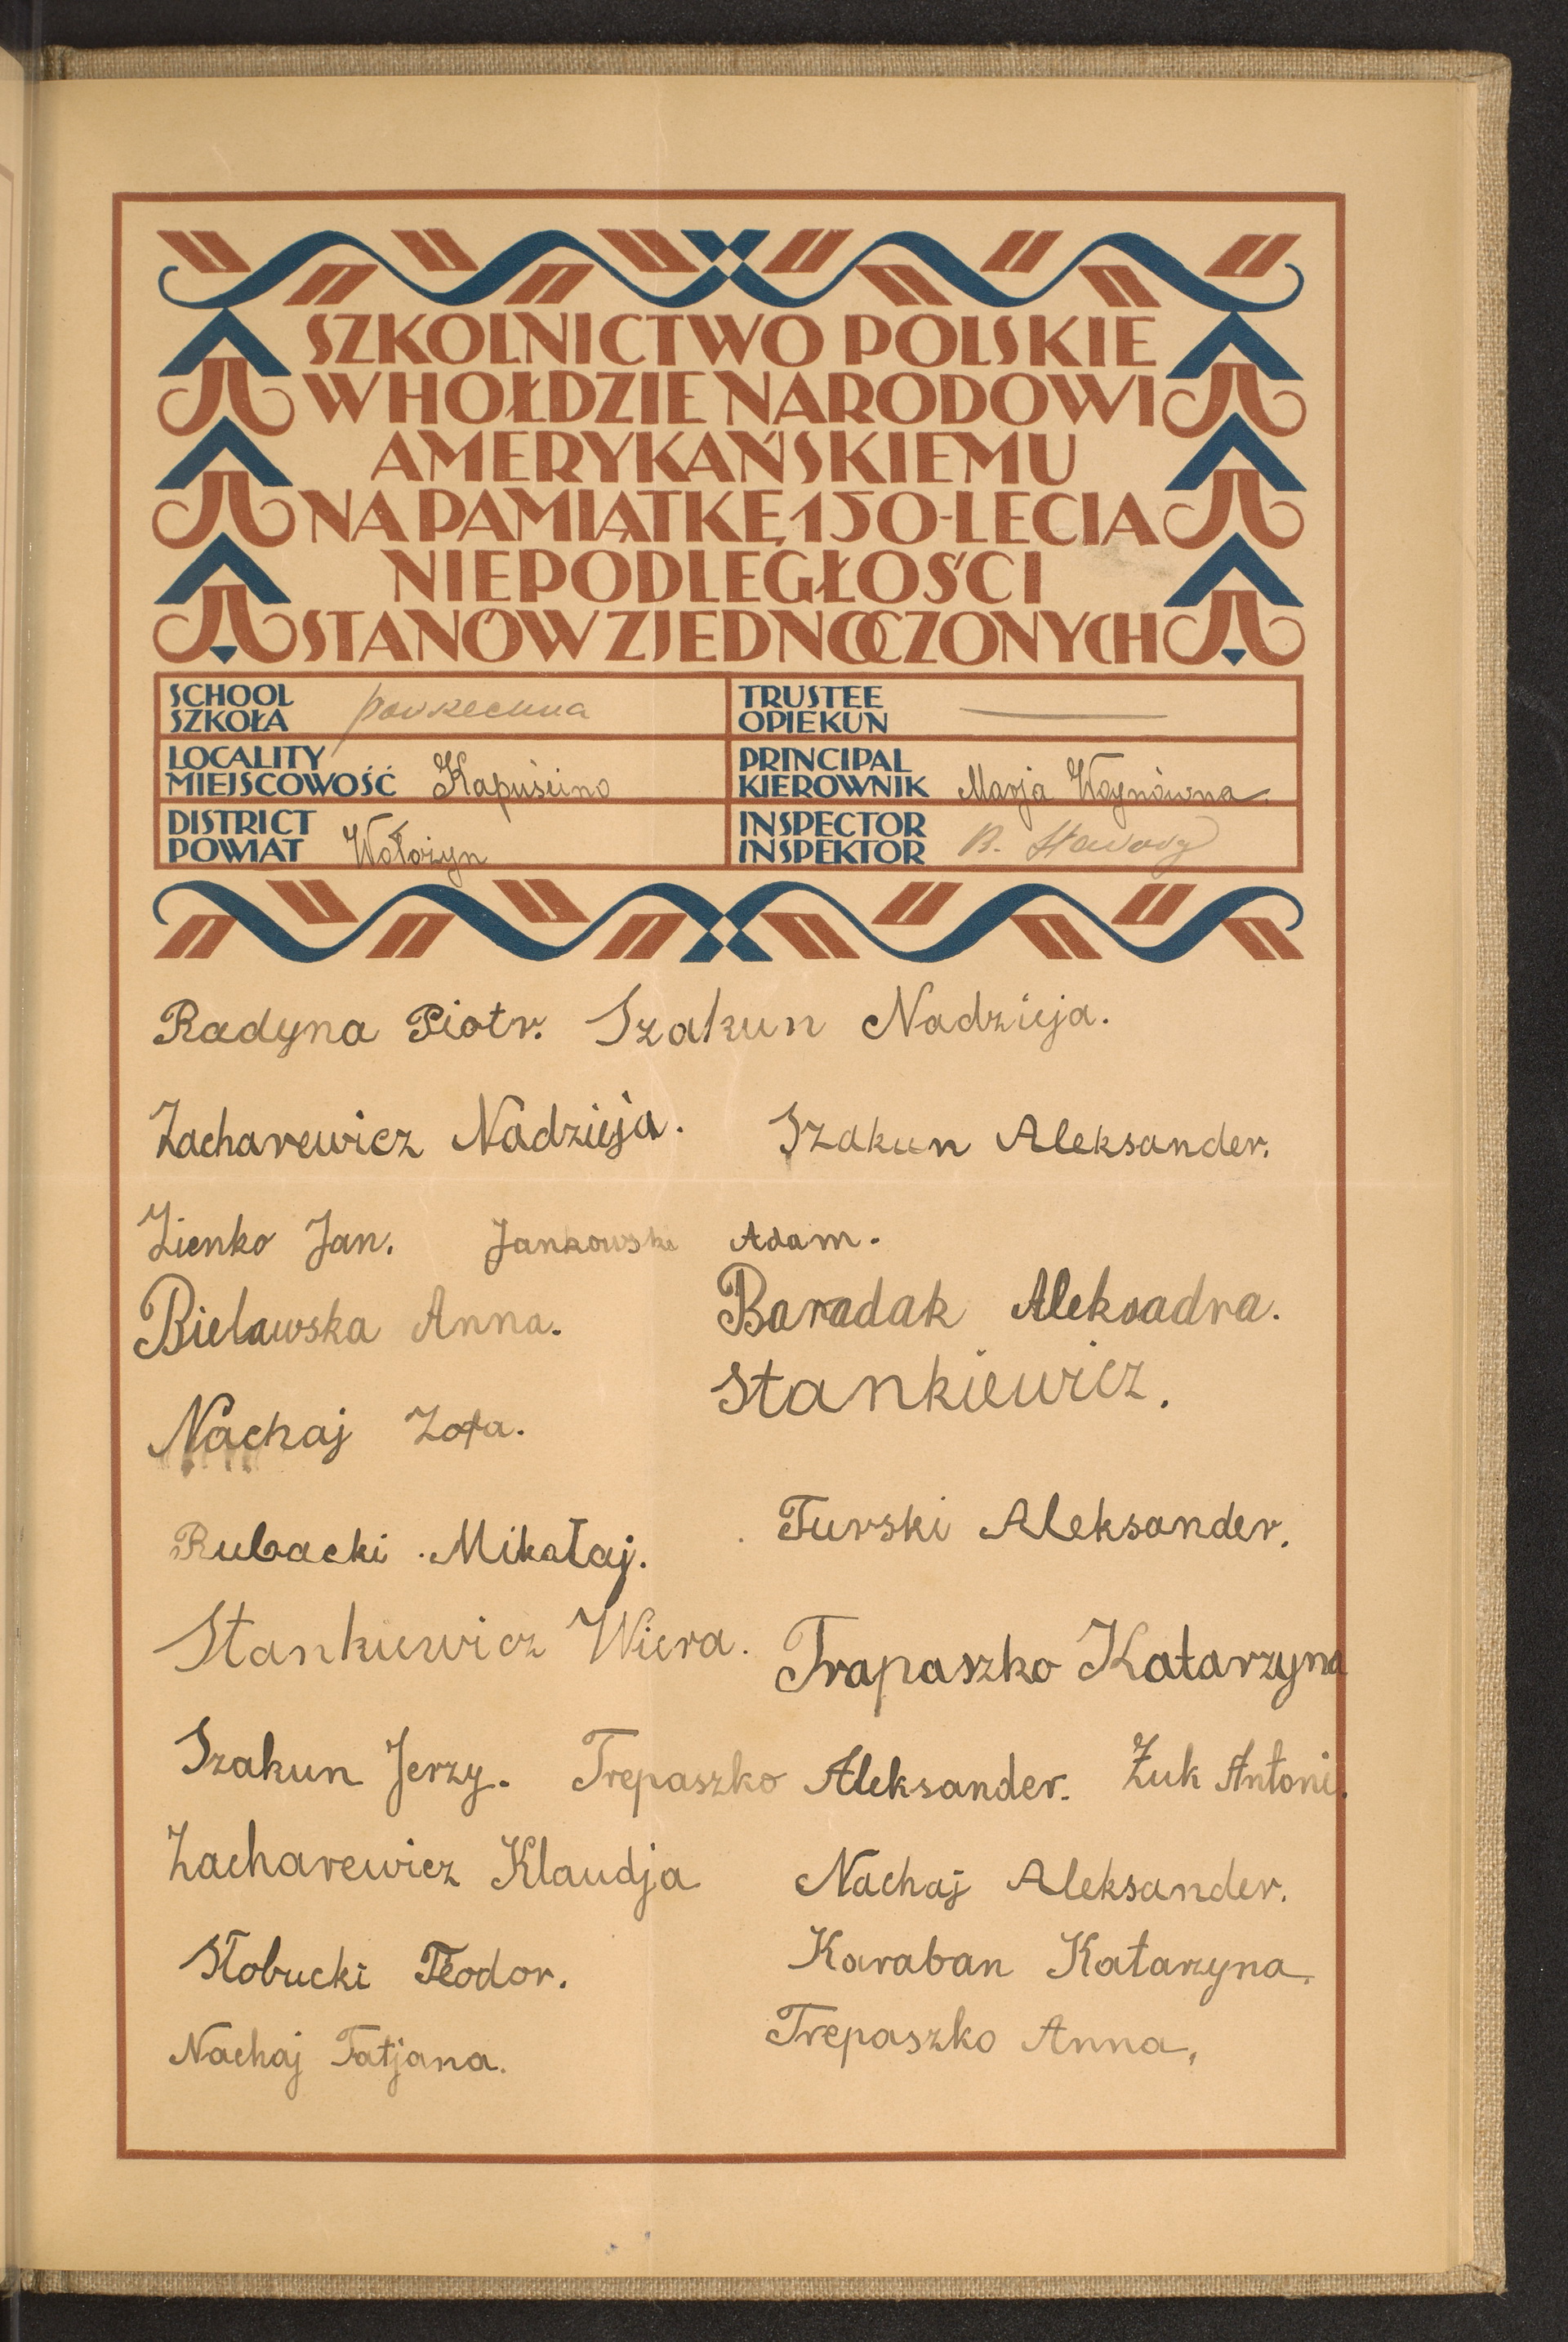 SZKOLNICTWO POLSKIE
W HOŁDZIE NARODOWI
AMERYKAŃSKIEMU
NA PAMIĄTKĘ 150-LECIA
NIEPODLEGŁOŚCI
STANÓW ZJEDNOCZONYCH
SCHOOL
SZKOŁA powszechna
TRUSTEE
OPIEKUN
LOCALITY
MIEJSCOWOŚĆ Kapuścino
PRINCIPAL
KIEROWNIK Marja Woynówna
DISTRICT
POWIAT Wołożyn
INSPECTOR
INSPEKTOR B.
Radyna Piotr. Szakun Nadzieja.
Zacharewicz Nadzieja. Szakun Aleksander.
Zienko Jan. Jankowski Adam.
Bielawska Anna. Baradak Aleksadra.
Stankiewicz.
Nachaj Zofa.
Rubacki Mikałaj. Turski Aleksander.
Stankiewicz Wiera. Trapaszko Katarzyna
Szakun Jerzy. Trepaszko Aleksander. Żuk Antoni.
Zacharewicz Klaudja Nachaj Aleksander.
Słobucki Teodor. Karaban Katarzyna.
Nachaj Tatjana. Trepaszko Anna,